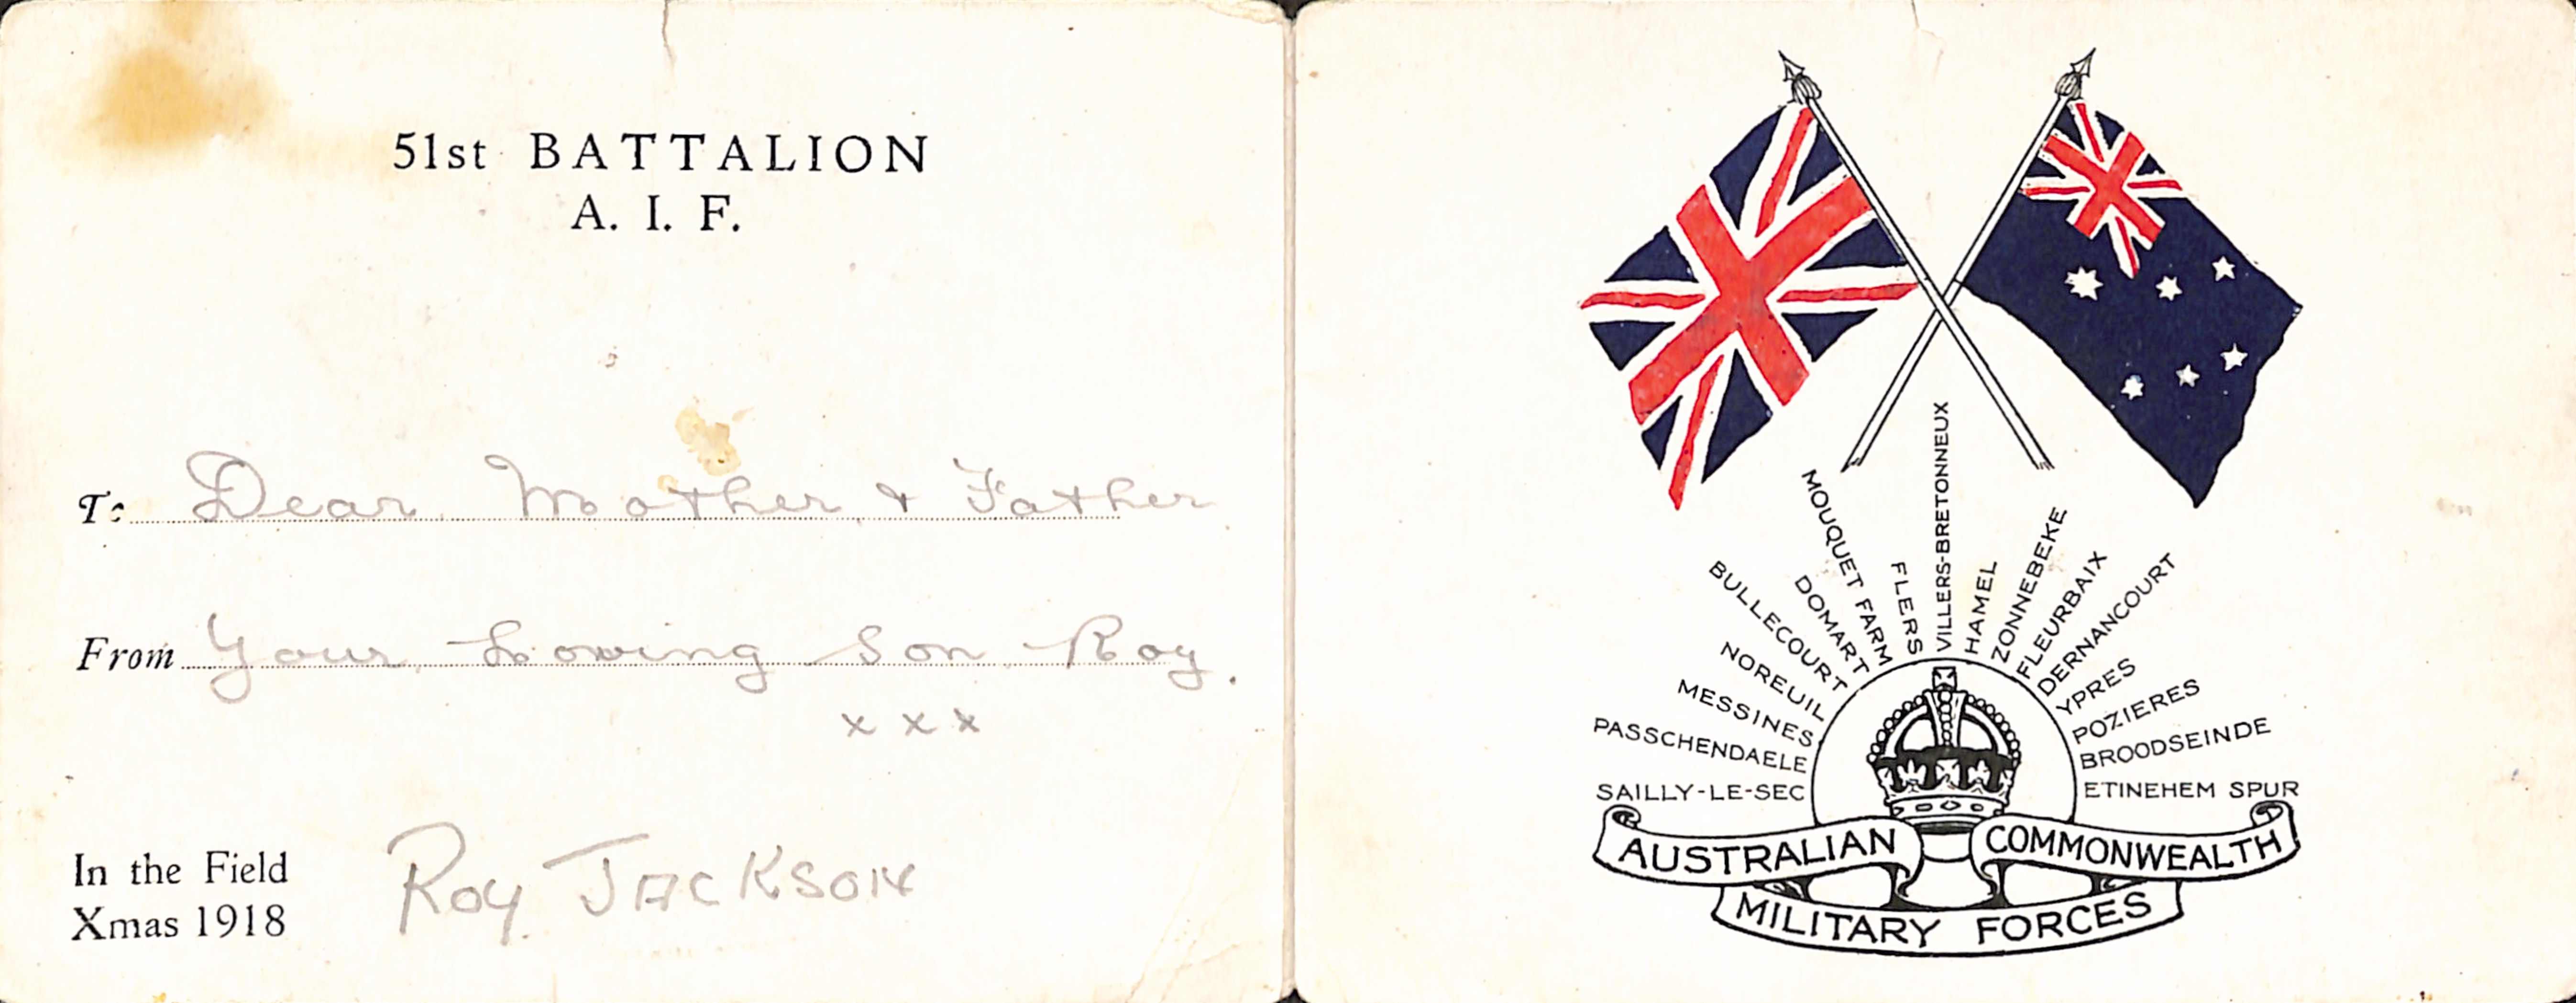 51st BATTALION
A. I. F.
To Dear Mother & Father
From Your Loving Son Roy.
x x x
In the Field
Xmas 1918
Roy JACKSON
SAILLY-LE-SEC
PASSCHENDAELE
MESSINES
NOREUIL
BULLECOURT
DOMART
MOUQUET FARM
FLERS
VILLERS-BRETONNEUX
HAMEL
ZONNEBEKE
FLEURBAIX
DERNANCOURT
YPRES
POZIERES
BROODSEINDE
ETINEHEM SPUR
AUSTRALIAN COMMONWEALTH
MILITARY FORCES